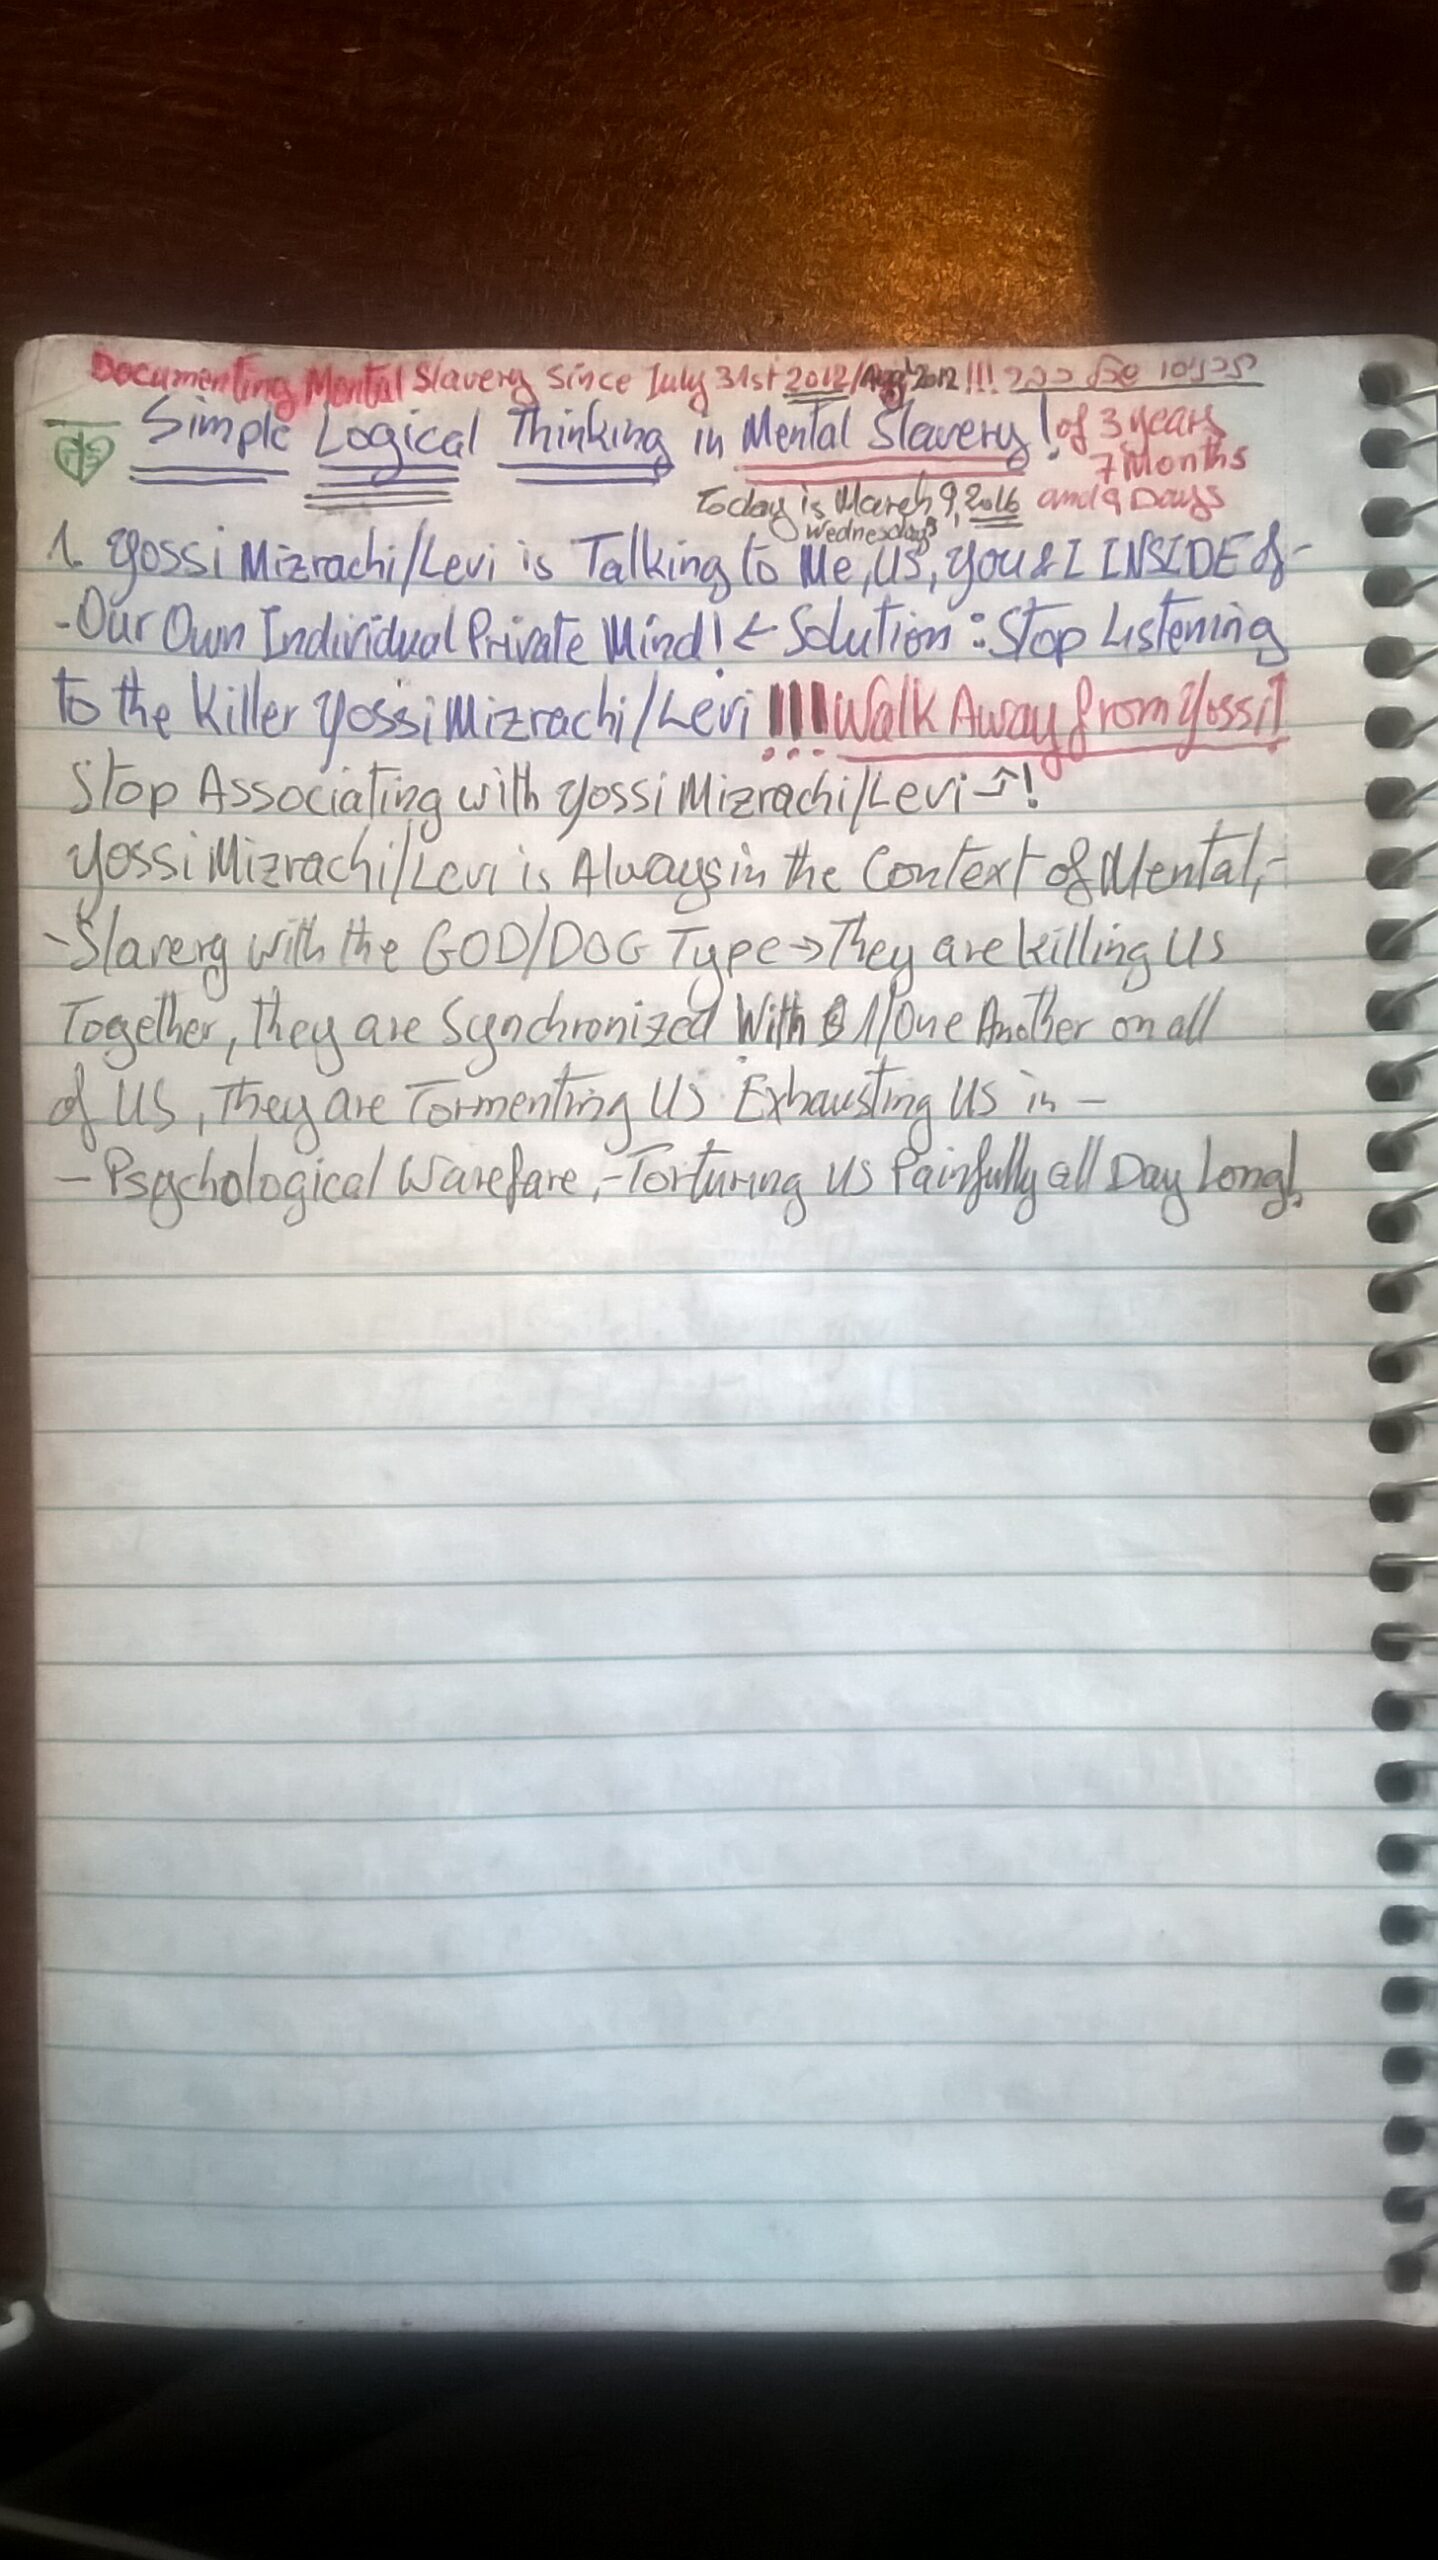 Documenting Mental Slavery Since July 31st 2012/Aug 1 2012!!!
Simple Logical Thinking in Mental Slavery! of 3 years
7 Months
and 9 Days
Today is March 9, 2016
Wednesday
1. Yossi Mizrachi/Levi is Talking to Me, US, YOU & I INSIDE of-
-Our Own Individual Private Mind! ← Solution: Stop Listening
to the Killer Yossi Mizrachi/Levi!!! Walk Away from Yossi!
Stop Associating with Yossi Mizrachi/Levi !
Yossi Mizrachi/Levi is Always in the Context of Mental,-
-Slavery with the GOD/DOG Type → They are killing US
Together, they are Synchronized With 1/One Another on all
of US, They are Tormenting US Exhausting US in -
- Psychological Warefare,-Torturing US Painfully all Day Long!